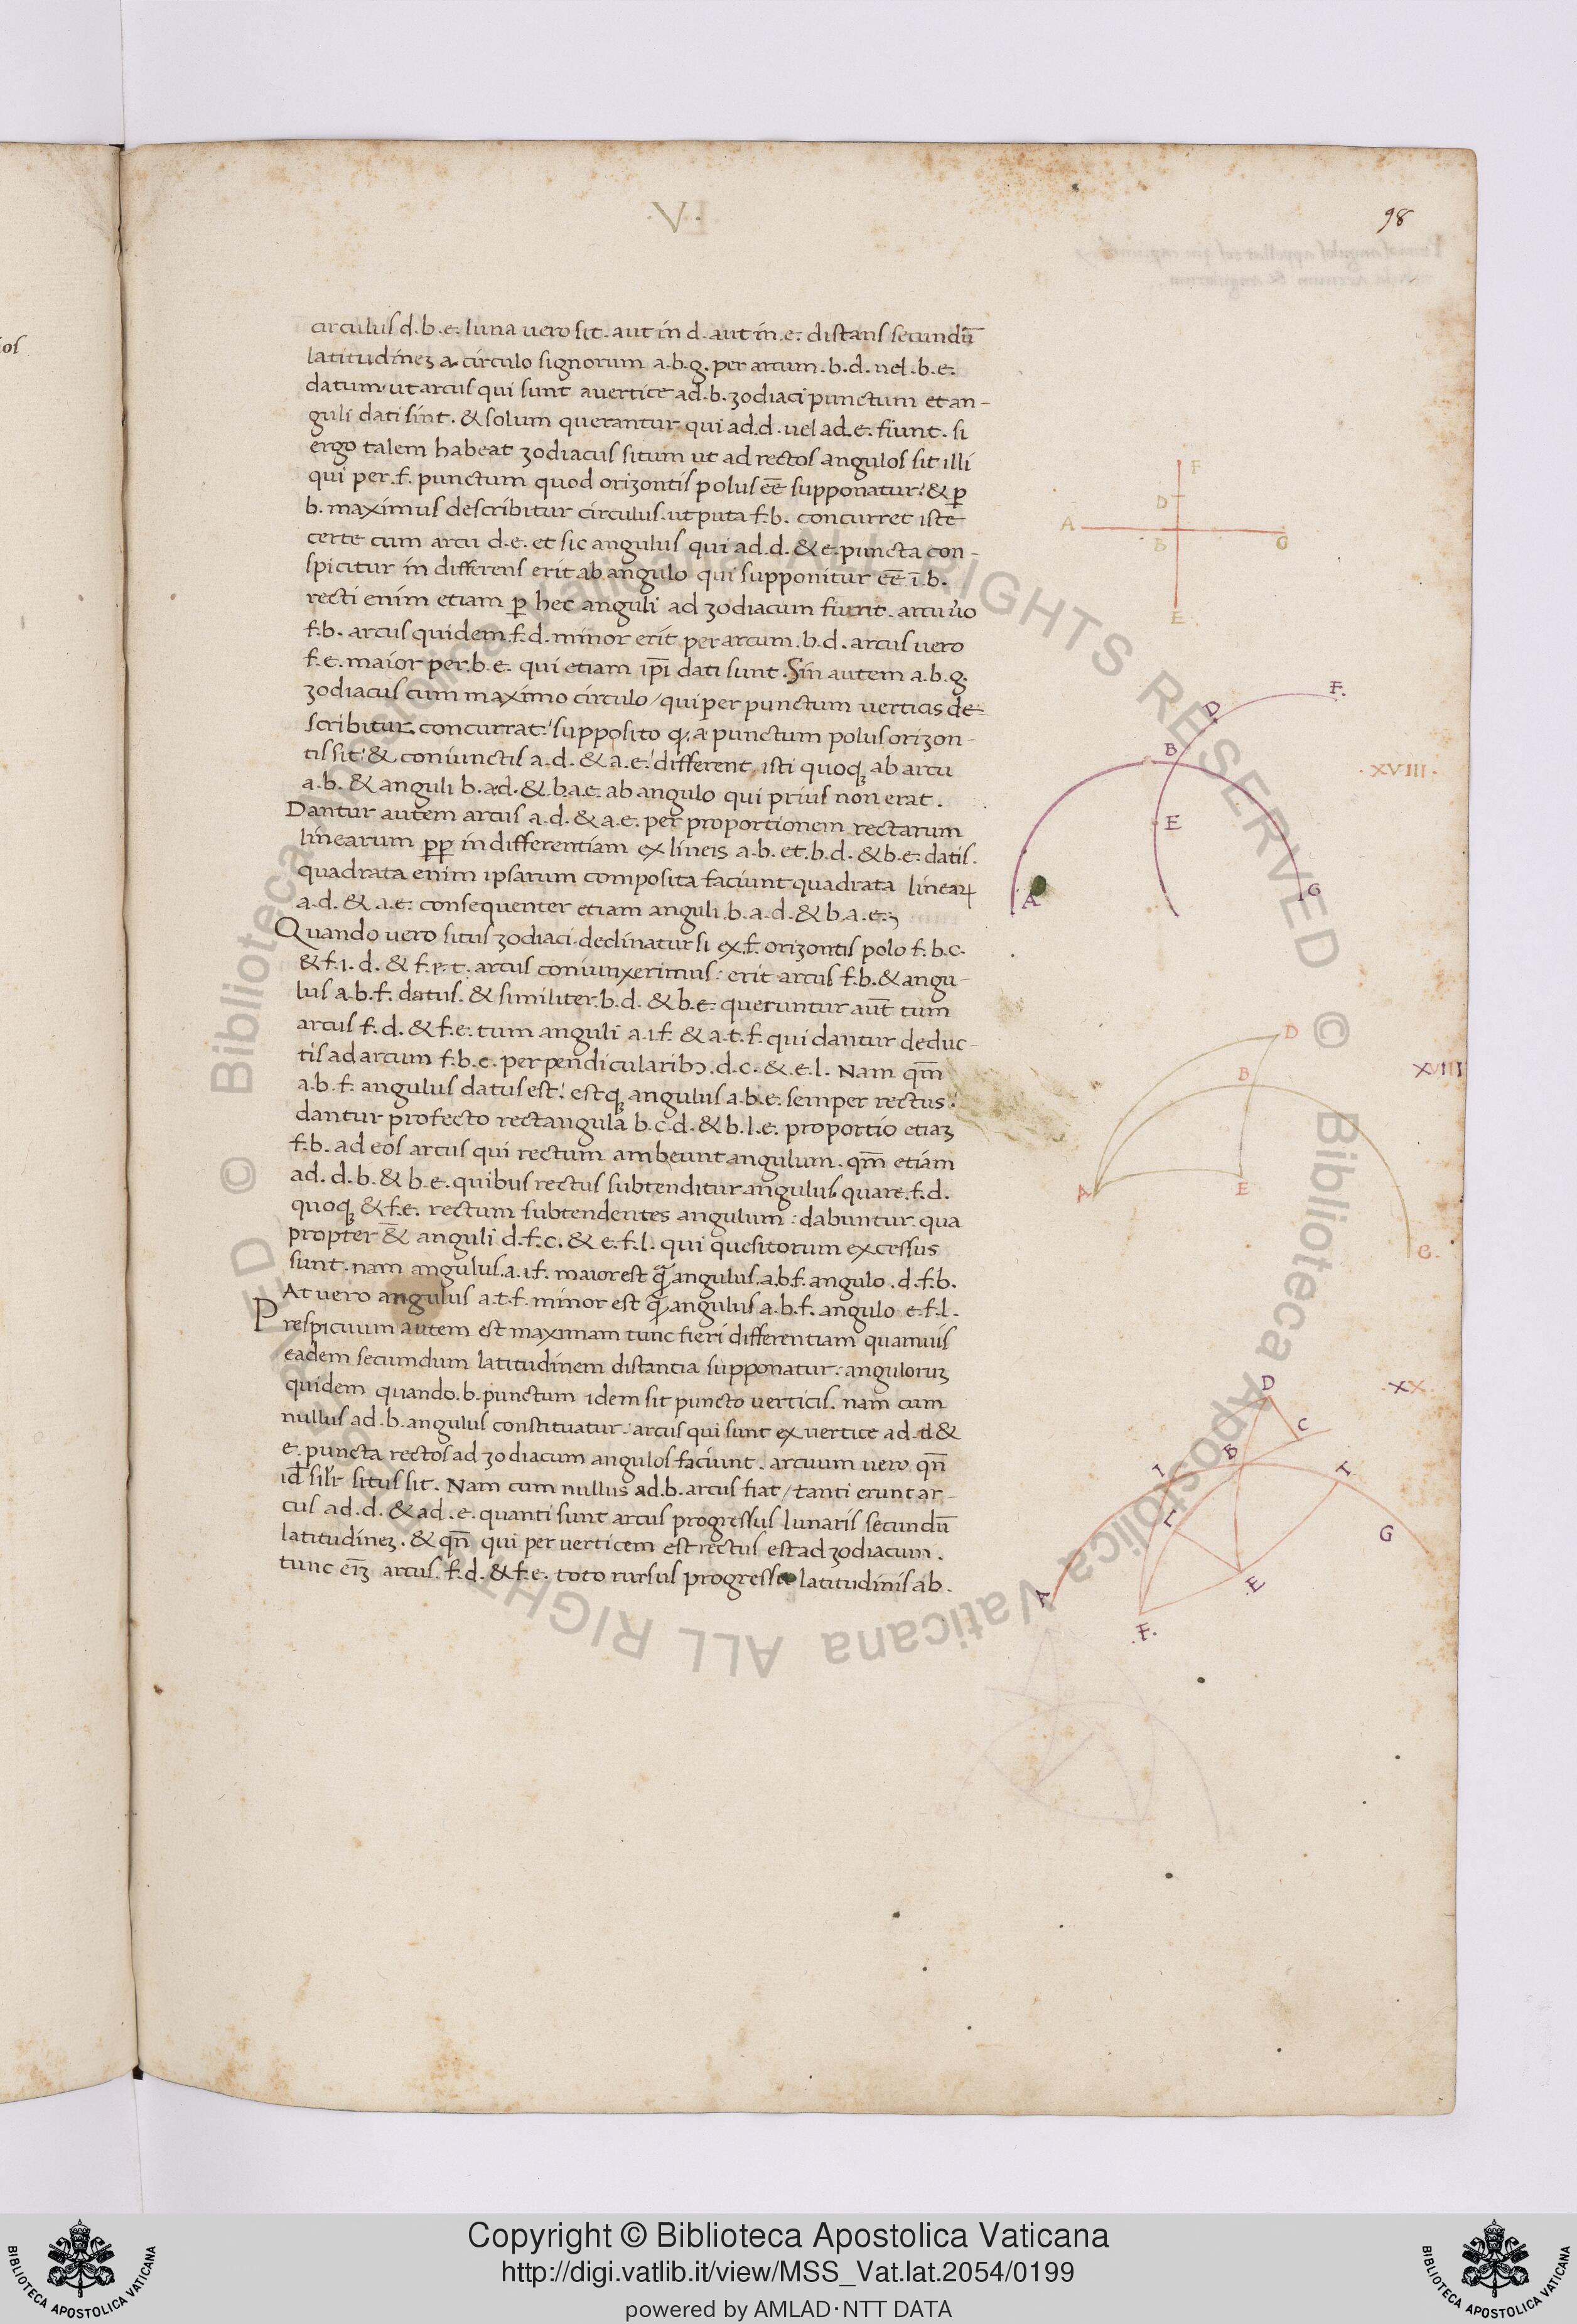 ·V·
98
circulus d.b.e. luna uero sit. aut in d. aut in.e. distans secundū
latitudineʒ a. circulo signorum a.b.g. per arcum.b.d. uel.b.e.
datum. ut arcus qui sunt a uertice ad.b. zodiaci punctum et an-
guli dati sint. & solum querantur qui ad.d. uel ad.e. fiunt. si
ergo talem habeat zodiacus situm ut ad rectos angulos sit illi
qui per.f. punctum quod orizontis polus eē supponatur: & ꝑ
b. maximus describitur circulus. ut puta f.b. concurret iste
certe cum arcu d.e. et sic angulus qui ad.d. & e. puncta con-
spicitur in differens erit ab angulo qui supponitur eē ī.b.
recti enim etiam ꝑ hec anguli ad zodiacum fiunt. arcu ūo
f.b. arcus quidem.f.d. minor erit per arcum.b.d. arcus uero
f.e. maior per.b.e. qui etiam ip̄i dati sunt. Sin autem a.b.g.
zodiacus cum maximo circulo/ qui per punctum uerticis de-
scribitur. concurrat: supposito ꝙ. a punctum polus orizon-
tis sit: & coniunctis a.d. & a.e: different isti quoqꝫ ab arcu
a.b. & anguli b.a.d. & b.a.e. ab angulo qui prius non erat.
Dantur autem arcus a.d. & a.e. per proportionem rectarum
linearum ꝑꝑ in differentiam ex lineis a.b. et.b.d. & b.e. datis.
quadrata enim ipsarum composita faciunt quadrata linearꝝ
a.d. & a.e. consequenter etiam anguli.b.a.d. & b.a.e.
Quando uero situs zodiaci declinatur si ex.f. orizontis polo f.b.c.
& f.i.d. & f.e.t. arcus coniunxerimus: erit arcus f.b. & angu-
lus a.b.f. datus. & similiter.b.d. & b.e. queruntur aūt tum
arcus f.d. & f.e. tum anguli a.i.f. & a.t.f. qui dantur deduc-
tis ad arcum f.b.c. perpendicularibꝫ.d.c. & .e.l. Nam qm̄
a.b.f. angulus datus est: estqꝫ angulus a.b.e. semper rectus:
dantur profecto rectangula b.c.d. & b.l.e. proportio etiaʒ
f.b. ad eos arcus qui rectum ambeunt angulum. qm̄ etiam
ad. d.b. & b.e. quibus rectus subtenditur angulus. quare.f.d.
quoqꝫ & f.e. rectum subtendentes angulum: dabuntur. qua
propter & anguli d.f.c. & e.f.l. qui quesitorum excessus
sunt. nam angulus.a.i.f. maior est ꝙ̄ angulus.a.b.f. angulo.d.f.b.
At uero angulus a.t.f. minor est ꝙ̄ angulus a.b.f. angulo e.f.l.
Prespicuum autem est maximam tunc fieri differentiam quamuis
eadem secundum latitudinem distantia supponatur: anguloruʒ
quidem quando.b. punctum idem sit puncto uerticis. nam cum
nullus ad.b. angulus constituatur: arcus qui sunt ex uertice ad.d &
e. puncta rectos ad zodiacum angulos faciunt. arcuum uero qn̄
situs sit. Nam cum nullus ad.b. arcus fiat/ tanti erunt ar-
cus ad.d. & ad.e. quanti sunt arcus progressus lunaris secundū
latitudineʒ. & qn̄ qui per uerticem est rectus est ad zodiacum.
tunc arcus.f.d. & f.e. toto rursus latitudinis ab.
F
D
A
B
G
E
F.
D
B
·XVIII·
E
A
G
D
XVIIII
B
A
E
G.
D
·XX·
C
B
I
T
L
G
E
A
.F.
© Biblioteca Apostolica Vaticana ALL RIGHTS RESERVED
© Biblioteca Apostolica Vaticana ALL RIGHTS RESERVED
BIBLIOTECA APOSTOLICA VATICANA
Copyright © Biblioteca Apostolica Vaticana
http://digi.vatlib.it/view/MSS_Vat.lat.2054/0199
powered by AMLAD·NTT DATA
BIBLIOTECA APOSTOLICA VATICANA